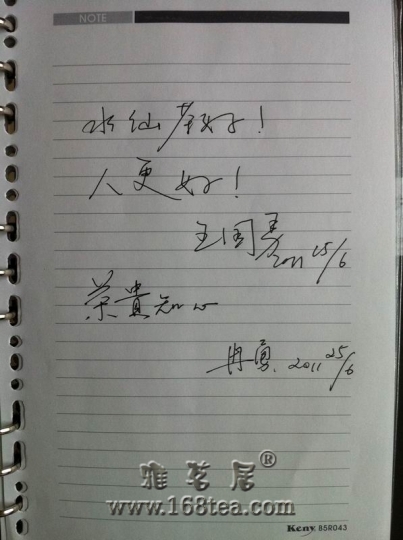 NOTE
水仙茶好！
人更好！
王国
2011 25/6
茶贵知心
冉勇 2011 25/6
雅茗居®
www.168tea.com
Keny B5R043